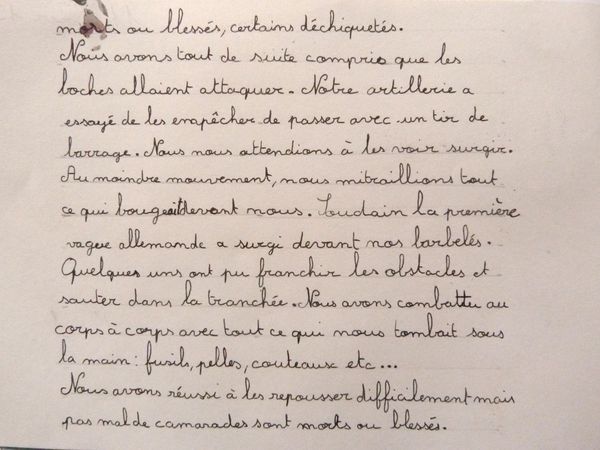 morts ou blessés, certains déchiquetés.
Nous avons tout de suite compris que les
boches allaient attaquer. Notre artillerie a
essayé de les empêcher de passer avec un tir de
barrage. Nous nous attendions à les voir surgir.
Au moindre mouvement, nous mitraillions tout
ce qui bougeait devant nous. Soudain la première
vague allemande a surgi devant nos barbelés.
Quelques uns ont pu franchir les obstacles et
sauter dans la tranchée. Nous avons combattu au
corps à corps avec tout ce qui nous tombait sous
la main : fusils, pelles, couteaux etc...
Nous avons réussi à les repousser difficilement mais
pas mal de camarades sont morts ou blessés.